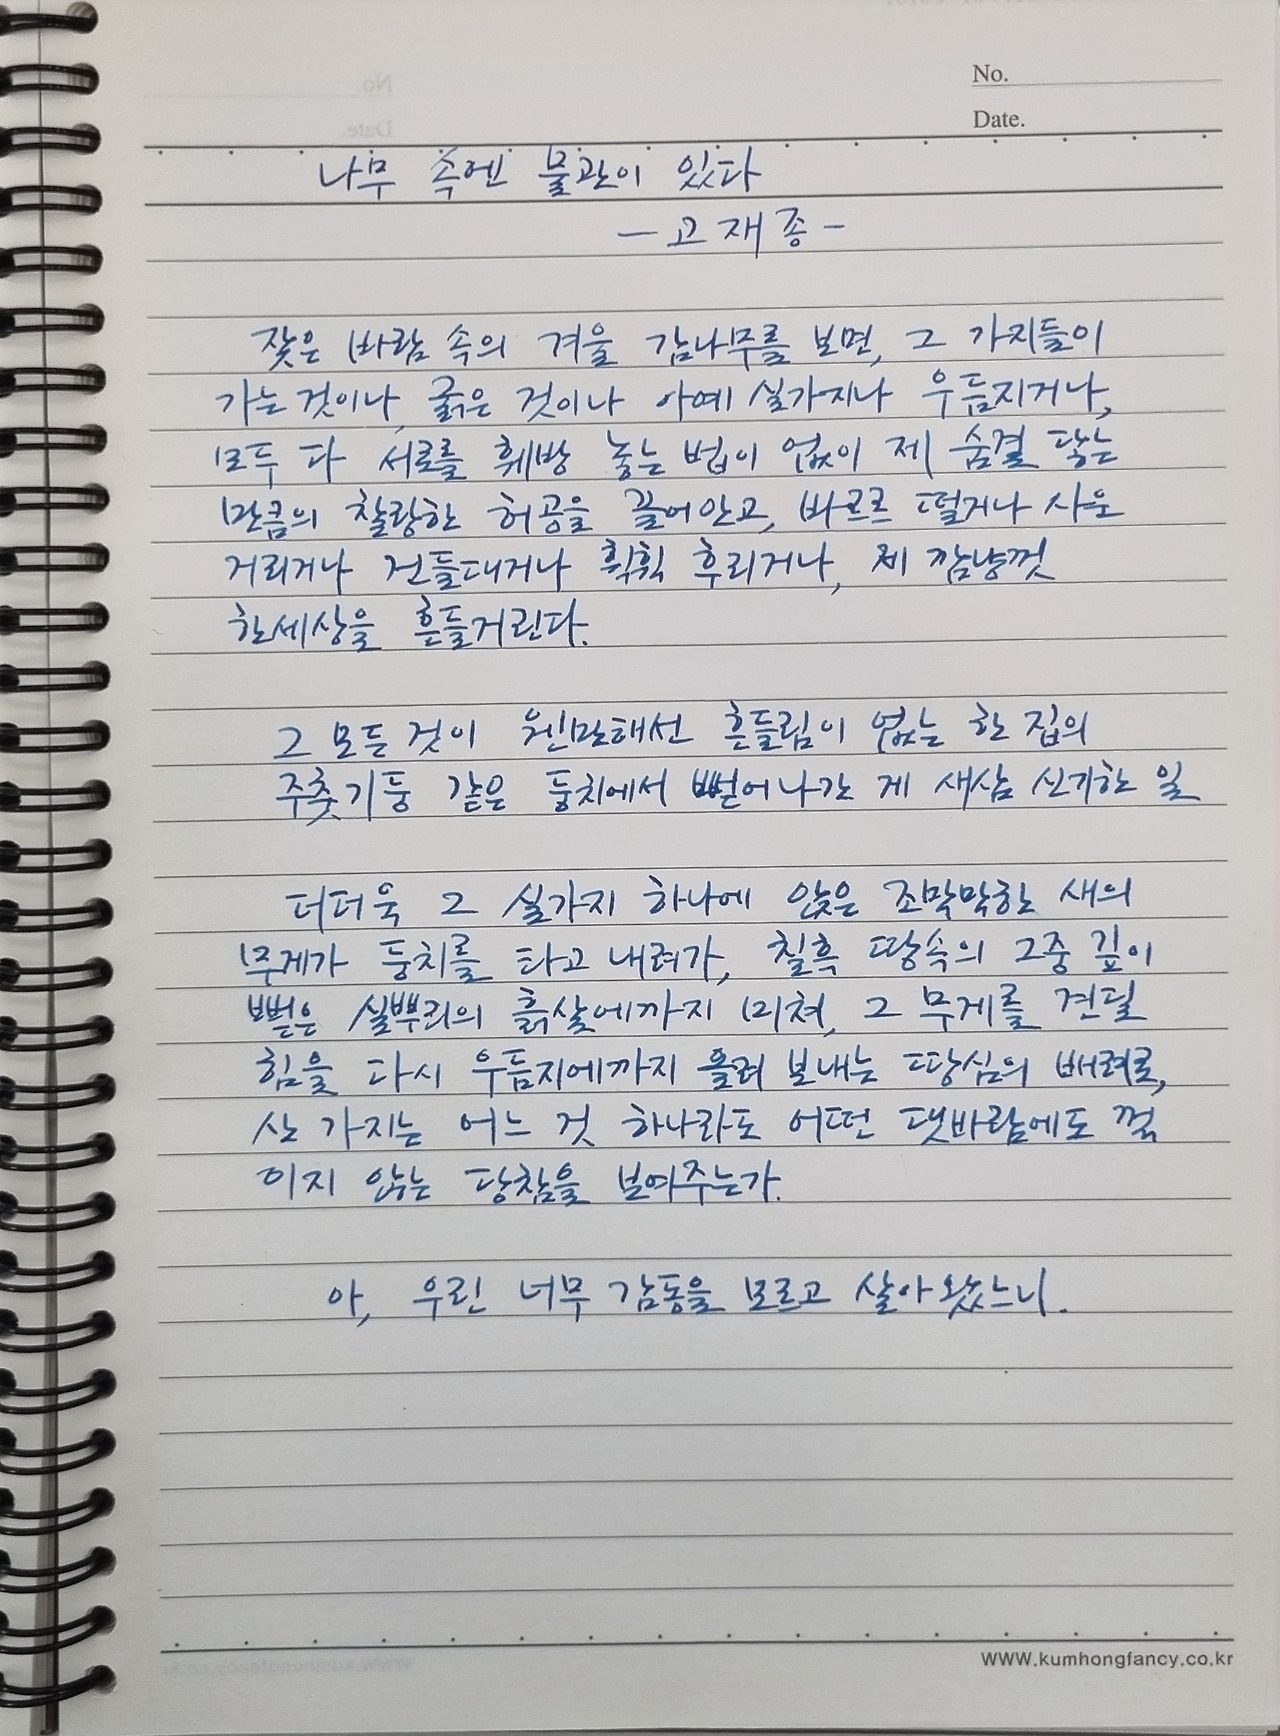 No.
Date.
나무 속엔 물관이 있다
- 고재종 -
잦은 바람 속의 겨울 감나무를 보면, 그 가지들이
가는 것이나, 굵은 것이나 아예 실가지나 우듬지거나,
모두 다 서로를 훼방 놓는 법이 없이 제 숨결 닿는
만큼의 찰랑한 허공을 끌어안고, 바르르 떨거나 사운
거리거나 건들대거나 휙휙 후리거나, 제 깜냥껏
한세상을 흔들거린다.
그 모든 것이 웬만해선 흔들림이 없는 한 집의
주춧기둥 같은 둥치에서 뻗어나간 게 새삼 신기한 일
더더욱 그 실가지 하나에 앉은 조막막한 새의
무게가 둥치를 타고 내려가, 칠흑 땅속의 그중 깊이
뻗은 실뿌리의 흙살에까지 미쳐, 그 무게를 견딜
힘을 다시 우듬지에까지 올려 보내는 땅심의 배려로,
산 가지는 어느 것 하나라도 어떤 댓바람에도 꺾
이지 않는 당참을 보여주는가.
아, 우린 너무 감동을 모르고 살아왔느니.
www.kumhongfancy.co.kr